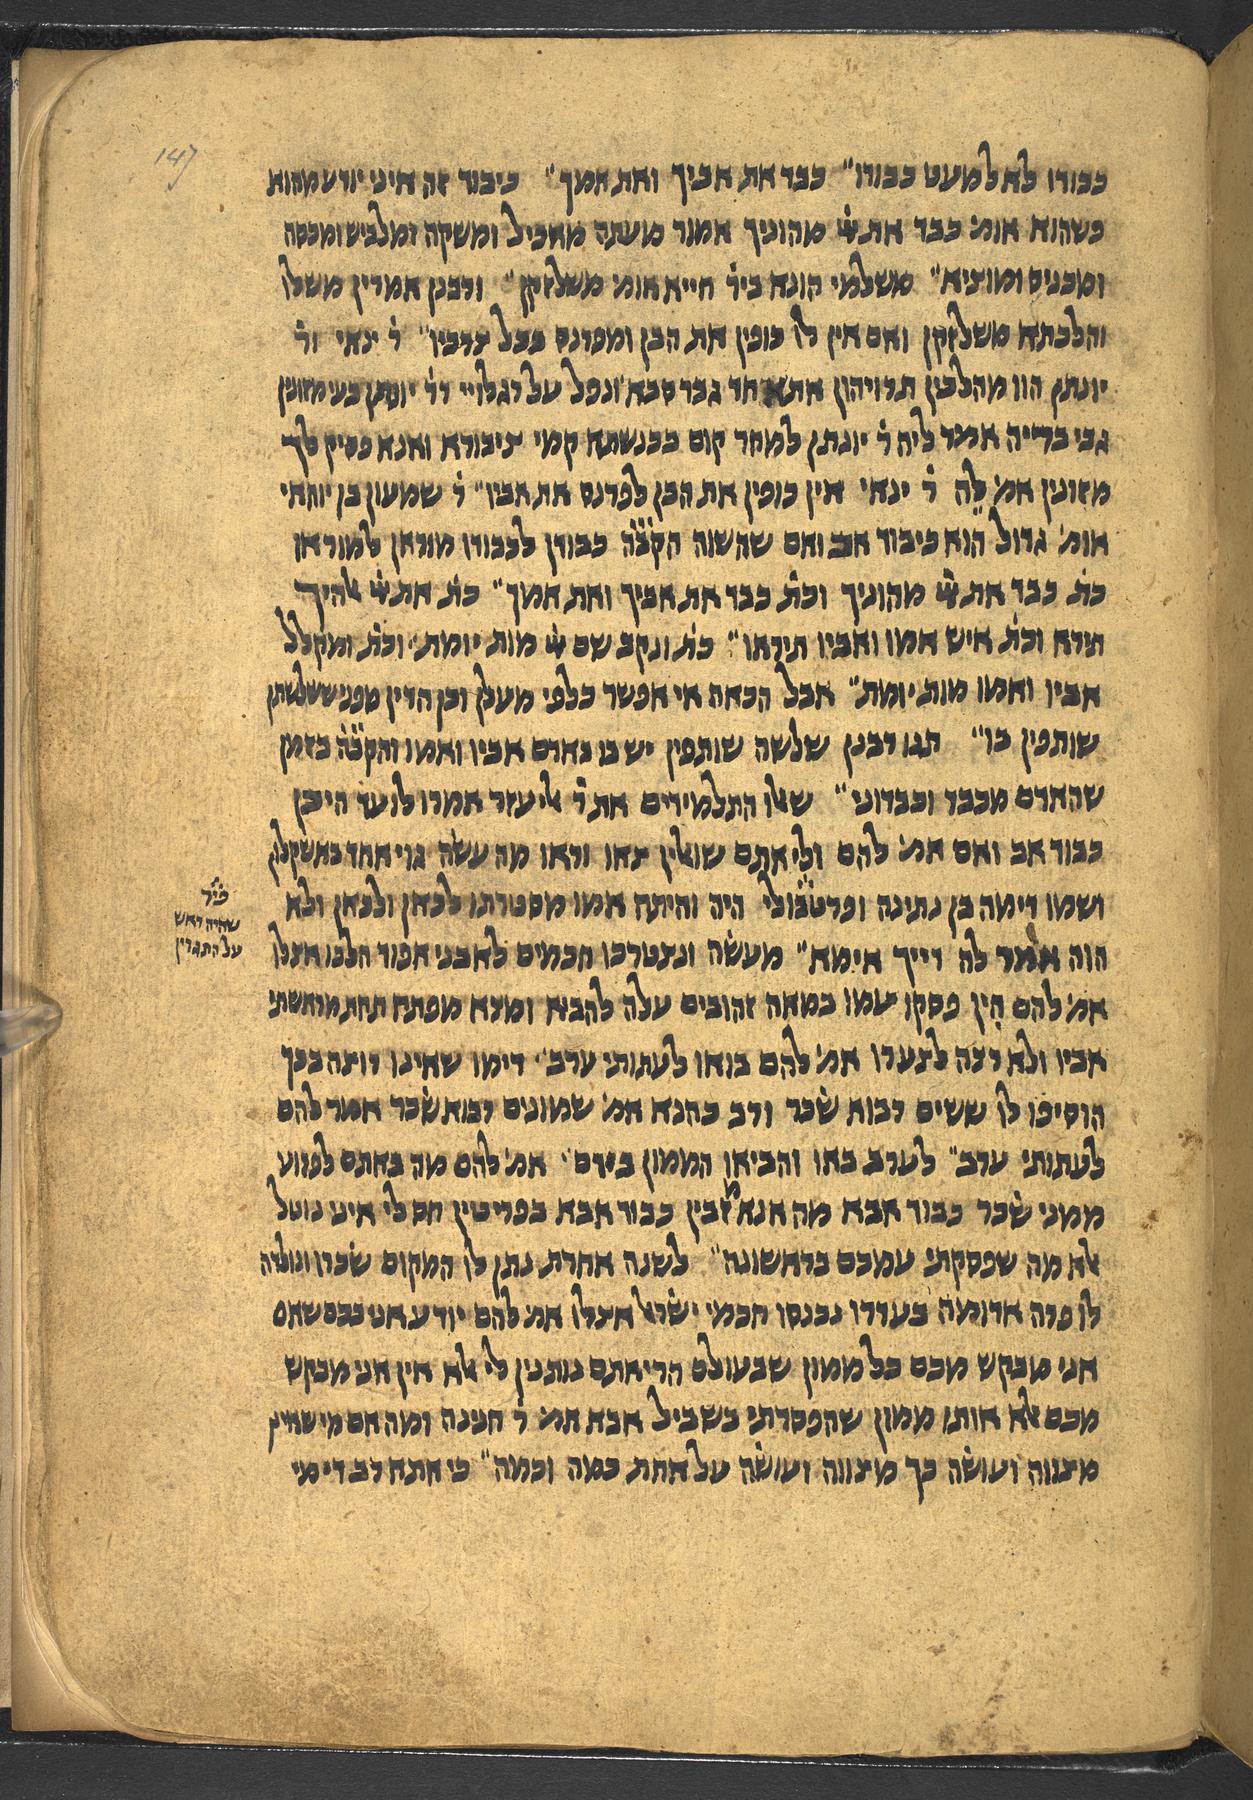 147
כבודו לא למעט כבודו״ כבד את אביך ואת אמך״ כיבוד זה איני יודע מהוא
כשהוא אומ׳ כבד את ייי מהוניך אמור מעתה מאכיל ומשקה ומלביש ומכסה
ומכניס ומוציא״ משלמי הונא ביר׳ חייא אומ׳ משלזקן״ ורבנן אמרין משלו
והלכתא משלזקן ואם אין לו כופין את הבן ומפרנס בכל צדביו״ ר׳ ינאי ור׳
יונתן הוו מהלכין תרויהון אתא חד גבר סבא ונפל על רגלויי דר׳ יונתן בעי מזונין
גבי בריה אמר ליה ר׳ יונתן למחר קום בכנשתא קמי ציבורא ואנא פסיק לך
מזונין אמ׳ לה ר׳ ינאי אין כופין את הבן לפרנס את אביו״ ר׳ שמעון בן יוחאי
אומ׳ גדול הוא כיבוד אב ואם שהשוה הקב״ה כבודן לכבודו מוראן למוראו
כת׳ כבד את ייי מהוניך וכת׳ כבד את אביך ואת אמך״ כת׳ את ייי אלהיך
תירא וכת׳ איש אמו ואביו תיראו״ כת׳ ונקב שם ייי מות יומת״ וכת׳ ומקלל
אביו ואמו מות יומת״ אבל הכאה אי אפשר כלפי מעלן וכן הדין מפני ששלשתן
שותפין בו״ תנו רבנן שלשה שותפין יש בו באדם אביו ואמו והקב״ה בזמן
שהאדם מכבד וכבדוני״ שאלו התלמידים את ר׳ אליעזר אמרו לו עד היכן
כבוד אב ואם אמ׳ להם ולי אתם שואלין צאו וראו מה עשה גוי אחד באשקלון
ושמו דימה בן נתינה ופרטבולי היה והיתה אמו מסטרתו לכאן ולכאן ולא
הוה אמר לה דייך אימא״ מעשה ונצטרכו חכמים לאבני אפוד הלכו אצלו
פי׳
שהיה ראש
על התגרין
אמ׳ להם הין פסקו עמו במאה זהובים עלה להביא ומצא מפתח תחת מראשתי
אביו ולא רצה לצערו אמ׳ להם בואו לעתותי ערב״ דימו שאינו רוצה בכך
הוסיפו לו ששים רבות שכר ורב כהנא אמ׳ שמונים רבוא שכר אמר להם
לעתותי ערב״ לערב באו והביאו הממון בידם״ אמ׳ להם מה באתם לפרוע
ממני שכר כבוד אבא מה אנא מזבין כבוד אבא בפריטין חס לי איני נוטל
אלא מה שפסקתי עמכם בראשונה״ לשנה אחרת נתן לו המקום שכרו ונולדה
לו פרה אדומה בעדרו נכנסו חכמי ישראל אצלו אמ׳ להם יודע אני בכם שאם
אני מבקש מכם כל ממון שבעולם הרי אתם נותנין לי אלא אין אני מבקש
מכם אלא אותו ממון שהפסדתי בשביל אבא אמ׳ ר׳ חנינה ומה אם מי שאין
מצווה ועושה כך מצווה ועושה על אחת כמה וכמה״ כי אתא רב דימי